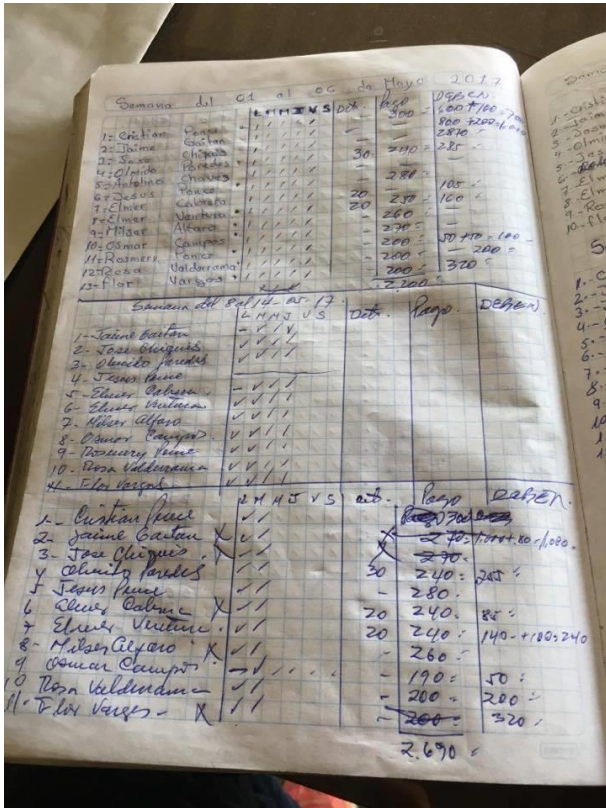 Semana del 01 al 06 de Mayo 2017
L M M J V S Dct. Pago DEBEN
1- Cristian Ponce - 300= 600+100=700
2- Jaime Gaitan - - 800+200=1,000
3- Jose Chiguis - - 2870=
4- Olmido Paredes 30 240= 285=
5- Antolino Chavez - -
6- Jesus Ponce - 280=
7- Elmer Cabrera 20 250= 105=
8- Elmer Ventura 20 260= 160=
9- Milser Alfaro - 270=
10- Osmar Campos - 200= 50+50=100
11- Rosmery Ponce - 200= 200=
12- Rosa Valderrama - 200= 320=
13- Flor Vargas
2,200=
Semana del 8 al 14-05-17.
L M M J V S Dct. Pago DEBEN
1- Jaime Gaitan
2- Jose Chiguis
3- Olmido Paredes
4- Jesus Ponce
5- Elmer Cabrera
6- Elmer Ventura
7- Milser Alfaro
8- Osmar Campos
9- Rosmery Ponce
10- Rosa Valderrama
11- Flor Vargas
L M M J V S dct. Pago DEBEN.
1- Cristian Ponce 300
2- Jaime Gaitan X 270= 1,000+80=1,080=
3- Jose Chiguis X 270=
4 Olmido Paredes 30 240= 255=
5 Jesus Ponce - 280=
6 Elmer Cabrera X 20 240= 85=
7 Elmer Ventura 20 240= 140+100=240
8- Milser Alfaro X - 260=
9 Osmar Campos - 190= 50=
10 Rosa Valderrama - 200= 200=
11- Flor Vargas - X - 200= 320=
2,690=